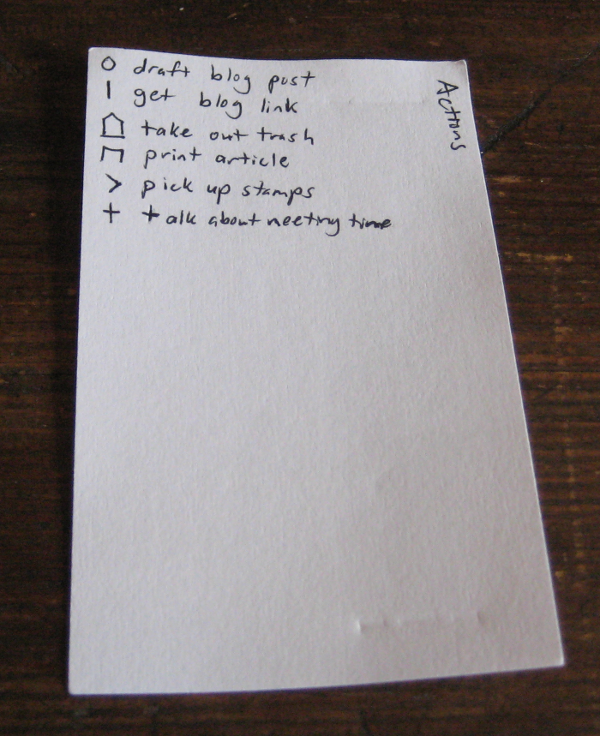 O draft blog post
| get blog link
take out trash
print article
> pick up stamps
+ talk about meeting time
Actions